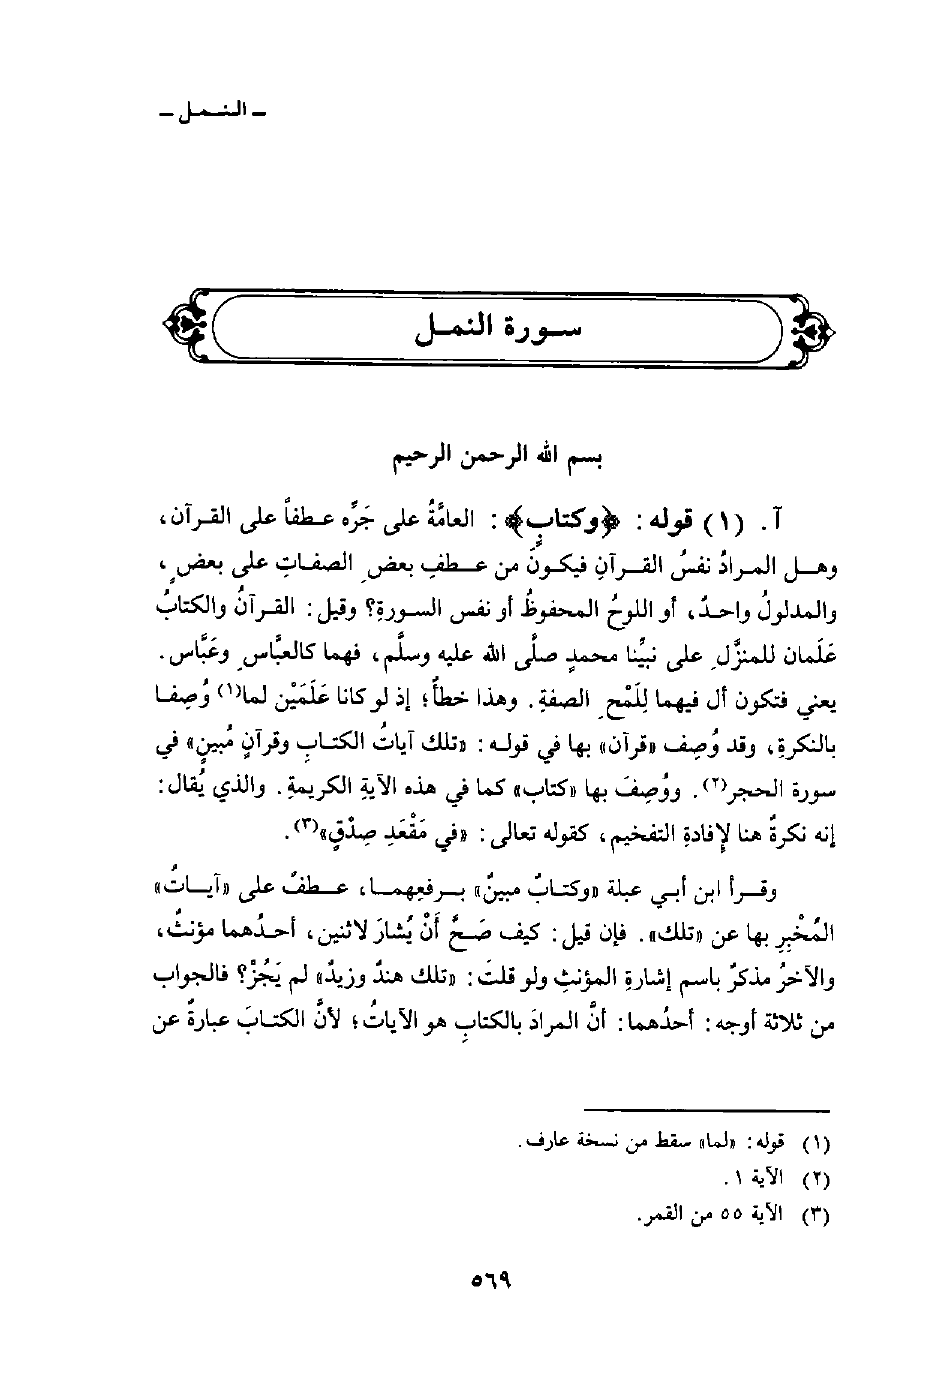 ـ النـمـل ـ
سـورة النمـل
بسم الله الرحمن الرحيم
آ. (١) قوله: ﴿وكتابٍ﴾: العامَّةُ على جَرِّه عـطفاً على القـرآن،
وهـل المـرادُ نفسُ القـرآنِ فيكـونُ من عـطفِ بعض الصفـاتِ على بعضٍ،
والمدلولُ واحدٌ، أو اللوحُ المحفوظُ أو نفس السورةِ؟ وقيل: القرآنُ والكتابُ
عَلَمان للمنزَّل على نبيِّنا محمدٍ صلَّى الله عليه وسلَّم، فهما كالعبَّاس وعَبَّاس.
يعني فتكون أل فيهما لِلَمْح الصفةِ. وهذا خطأٌ؛ إذ لو كانا عَلَمَيْن لما(١) وُصِفا
بالنكرةِ، وقد وُصِف «قرآن» بها في قولـه: «تلك آياتُ الكتـابِ وقرآنٍ مُبينٍ» في
سورة الحجر(٢). ووُصِفَ بها «كتاب» كما في هذه الآيةِ الكريمةِ. والذي يُقال:
إنه نكرةٌ هنا لإِفادةِ التفخيم، كقوله تعالى: «في مَقْعَدِ صِدْقٍ»(٣).
وقـرأ ابن أبـي عبلة «وكتـابٌ مبينٌ» بـرفعِهمـا، عـطفٌ على «آيـاتُ»
المُخْبِرِ بها عن «تلك». فإن قيل: كيف صَحَّ أَنْ يُشارَ لاثنين، أحـدُهما مؤنثٌ،
والآخرُ مذكرٌ باسم إشارةِ المؤنثِ ولو قلتَ: «تلك هندٌ وزيدٌ» لم يَجُزْ؟ فالجواب
من ثلاثة أوجه: أحدُهما: أنَّ المرادَ بالكتابِ هو الآياتُ؛ لأنَّ الكتـابَ عبارةٌ عن
(١) قوله: «لما» سقط من نسخة عارف.
(٢) الآية ١.
(٣) الآية ٥٥ من القمر.
٥٦٩